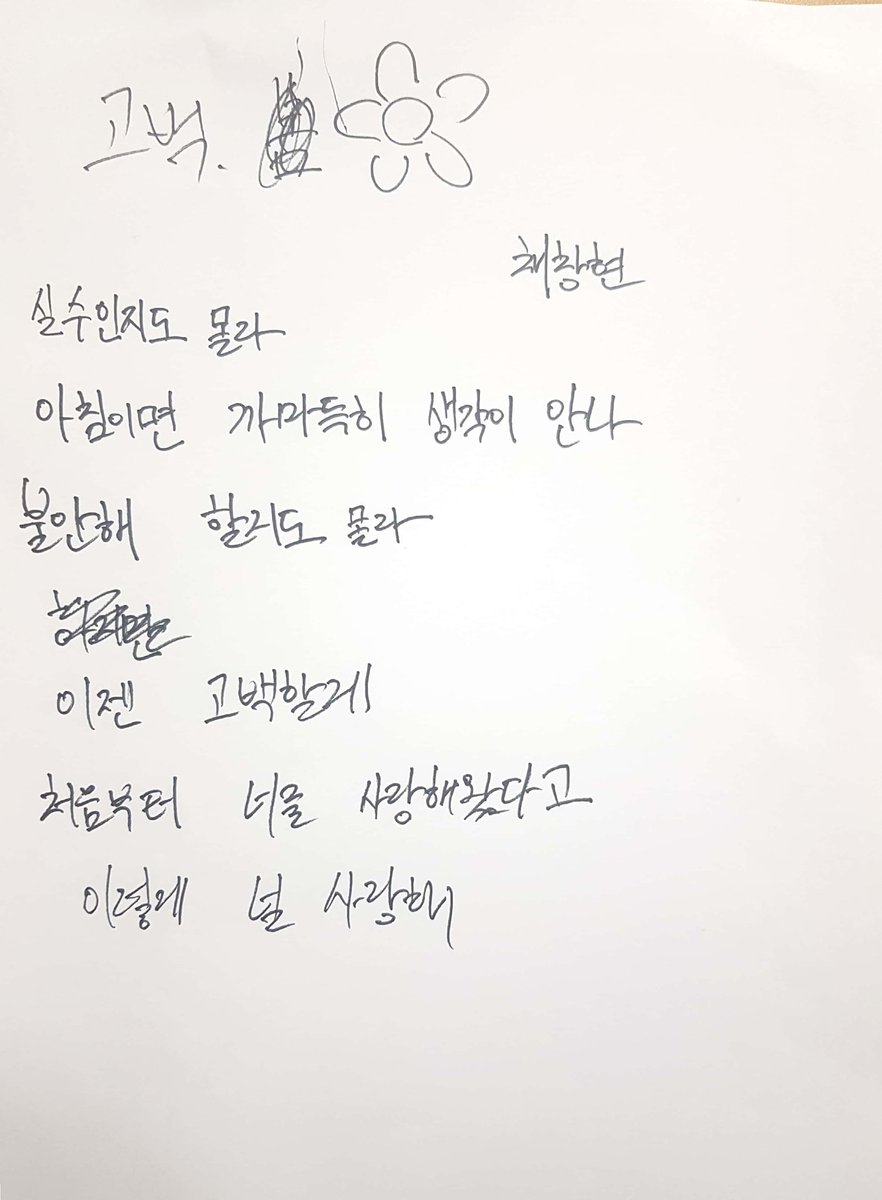 고백.
채창현
실수인지도 몰라
아침이면 까마득히 생각이 안나
불안해 할지도 몰라
이젠 고백할게
처음부터 너를 사랑해왔다고
이렇게 널 사랑해